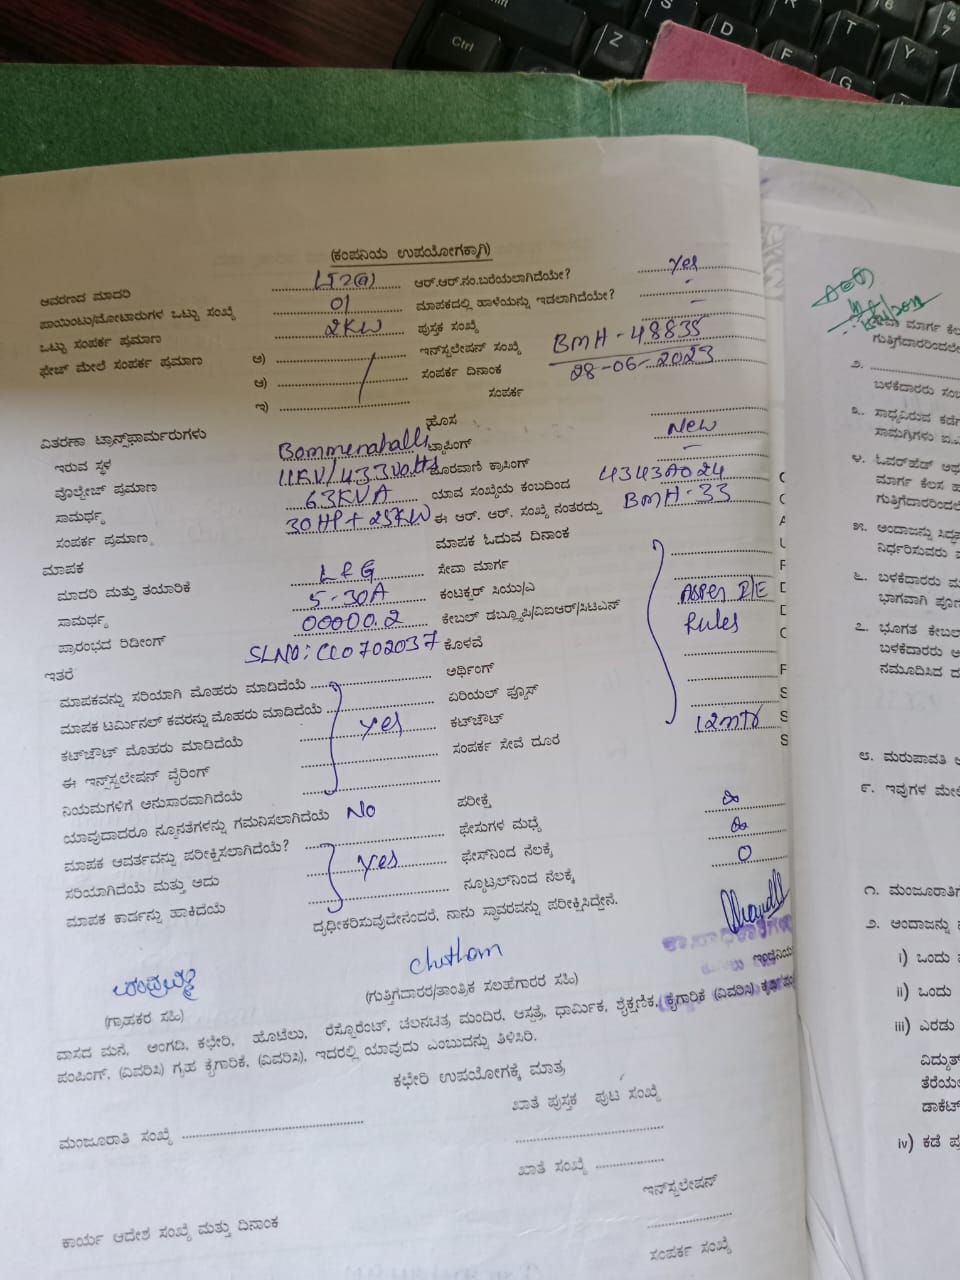 (ಕಂಪನಿಯ ಉಪಯೋಗಕ್ಕಾಗಿ)
ಆವರಣದ ಮಾದರಿ LT2(a) ಆರ್.ಆರ್.ನಂ.ಬರೆಯಲಾಗಿದೆಯೇ? Yes
ಪಾಯಿಂಟು/ಮೋಟಾರುಗಳ ಒಟ್ಟು ಸಂಖ್ಯೆ 01 ಮಾಪಕದಲ್ಲಿ ಹಾಳೆಯನ್ನು ಇಡಲಾಗಿದೆಯೇ? -
ಒಟ್ಟು ಸಂಪರ್ಕ ಪ್ರಮಾಣ 2KW ಪುಸ್ತಕ ಸಂಖ್ಯೆ -
ಫೇಜ್ ಮೇಲೆ ಸಂಪರ್ಕ ಪ್ರಮಾಣ ಅ) ಇನ್‌ಸ್ಟಲೇಷನ್ ಸಂಖ್ಯೆ BMH-48835
ಆ) ಸಂಪರ್ಕ ದಿನಾಂಕ 28-06-2023
ಇ) ಸಂಪರ್ಕ
ವಿತರಣಾ ಟ್ರಾನ್ಸ್‌ಫಾರ್ಮರುಗಳು ಹೊಸ
ಇರುವ ಸ್ಥಳ Bommenahalli ಟ್ಯಾಪಿಂಗ್ New
ವೊಲ್ಟೇಜ್ ಪ್ರಮಾಣ 11KV/433volts ದೊರವಾಣಿ ಕ್ರಾಸಿಂಗ್ -
ಸಾಮರ್ಥ್ಯ 63KVA ಯಾವ ಸಂಖ್ಯೆಯ ಕಂಬದಿಂದ 4343A024
ಸಂಪರ್ಕ ಪ್ರಮಾಣ 30HP+25KW ಈ ಆರ್. ಆರ್. ಸಂಖ್ಯೆ ನಂತರದ್ದು BMH-33
ಮಾಪಕ ಮಾಪಕ ಓದುವ ದಿನಾಂಕ
ಮಾದರಿ ಮತ್ತು ತಯಾರಿಕೆ L&G ಸೇವಾ ಮಾರ್ಗ
ಸಾಮರ್ಥ್ಯ 5-30A ಕಂಟಕ್ಟರ್ ಸಿಯು/ಎ
ಪ್ರಾರಂಭದ ರಿಡೀಂಗ್ 00000.2 ಕೇಬಲ್ ಡಬ್ಲ್ಯೂಪಿ/ವಿಐಆರ್/ಸಿಟಿಎಸ್ ASper I/E
ಇತರೆ SLNO: CC0702037 ಕೊಳವೆ Rules
ಮಾಪಕವನ್ನು ಸರಿಯಾಗಿ ಮೊಹರು ಮಾಡಿದೆಯೆ ಅರ್ಥಿಂಗ್
ಮಾಪಕ ಟರ್ಮಿನಲ್ ಕವರನ್ನು ಮೊಹರು ಮಾಡಿದೆಯೆ ಏರಿಯಲ್ ಫ್ಯೂಸ್
ಕಟ್‌ಔಟ್ ಮೊಹರು ಮಾಡಿದೆಯೆ yes ಕಟ್‌ಔಟ್
ಈ ಇನ್‌ಸ್ಟಲೇಷನ್ ವೈರಿಂಗ್ ಸಂಪರ್ಕ ಸೇವೆ ದೂರ 12mtr
ನಿಯಮಗಳಿಗೆ ಅನುಸಾರವಾಗಿದೆಯೆ
ಯಾವುದಾದರೂ ನ್ಯೂನತೆಗಳನ್ನು ಗಮನಿಸಲಾಗಿದೆಯೆ No ಪರೀಕ್ಷೆ
ಮಾಪಕ ಆವರ್ತವನ್ನು ಪರೀಕ್ಷಿಸಲಾಗಿದೆಯೆ? ಫೇಸುಗಳ ಮಧ್ಯೆ ∞
ಸರಿಯಾಗಿದೆಯೆ ಮತ್ತು ಅದು yes ಫೇಸ್‌ನಿಂದ ನೆಲಕ್ಕೆ ∞
ಮಾಪಕ ಕಾರ್ಡನ್ನು ಹಾಕಿದೆಯೆ ನ್ಯೂಟ್ರಲ್‌ನಿಂದ ನೆಲಕ್ಕೆ 0
ದೃಢೀಕರಿಸುವುದೇನೆಂದರೆ, ನಾನು ಸ್ಥಾವರವನ್ನು ಪರೀಕ್ಷಿಸಿದ್ದೇನೆ.
(ಗ್ರಾಹಕರ ಸಹಿ) (ಗುತ್ತಿಗೆದಾರರ/ತಾಂತ್ರಿಕ ಸಲಹೆಗಾರರ ಸಹಿ)
ವಾಸದ ಮನೆ, ಅಂಗಡಿ, ಕಛೇರಿ, ಹೊಟೆಲು, ರೆಸ್ಟೊರೆಂಟ್, ಚಲನಚಿತ್ರ ಮಂದಿರ, ಆಸ್ಪತ್ರೆ, ಧಾರ್ಮಿಕ, ಶೈಕ್ಷಣಿಕ, ಕೈಗಾರಿಕೆ (ವಿವರಿಸಿ)
ಪಂಪಿಂಗ್, (ವಿವರಿಸಿ) ಗೃಹ ಕೈಗಾರಿಕೆ, (ವಿವರಿಸಿ), ಇದರಲ್ಲಿ ಯಾವುದು ಎಂಬುದನ್ನು ತಿಳಿಸಿರಿ.
ಕಛೇರಿ ಉಪಯೋಗಕ್ಕೆ ಮಾತ್ರ
ಖಾತೆ ಪುಸ್ತಕ ಪುಟ ಸಂಖ್ಯೆ
ಮಂಜೂರಾತಿ ಸಂಖ್ಯೆ
ಖಾತೆ ಸಂಖ್ಯೆ
ಇನ್‌ಸ್ಟಲೇಷನ್
ಕಾರ್ಯ ಆದೇಶ ಸಂಖ್ಯೆ ಮತ್ತು ದಿನಾಂಕ
ಸಂಪರ್ಕ ಸಂಖ್ಯೆ
ಮಾರ್ಗ
ಗುತ್ತಿಗೆದಾರರಿಂದಲೇ
೨.
ಬಳಕೆದಾರರು
೩. ಸಾಧ್ಯವಿರುವ
ಸಾಮಗ್ರಿಗಳು
೪. ಓವರ್‌ಹೆಡ್
ಮಾರ್ಗ ಕೆಲಸ
ಗುತ್ತಿಗೆದಾರರಿಂದಲೇ
೫. ಅಂದಾಜನ್ನು
ನಿರ್ಧರಿಸುವರು
೬. ಬಳಕೆದಾರರು
ಭಾಗವಾಗಿ
೭. ಭೂಗತ ಕೇಬಲ್
ಬಳಕೆದಾರರು
ನಮೂದಿಸಿದ
೮. ಮರುಪಾವತಿ
೯. ಇವುಗಳ
೧. ಮಂಜೂರಾತಿಗೆ
೨. ಅಂದಾಜನ್ನು
i) ಒಂದು
ii) ಒಂದು
iii) ಎರಡು
iv) ಕಡೆ
Ctrl
Z
S
D
F
R
T
G
Y
6
7